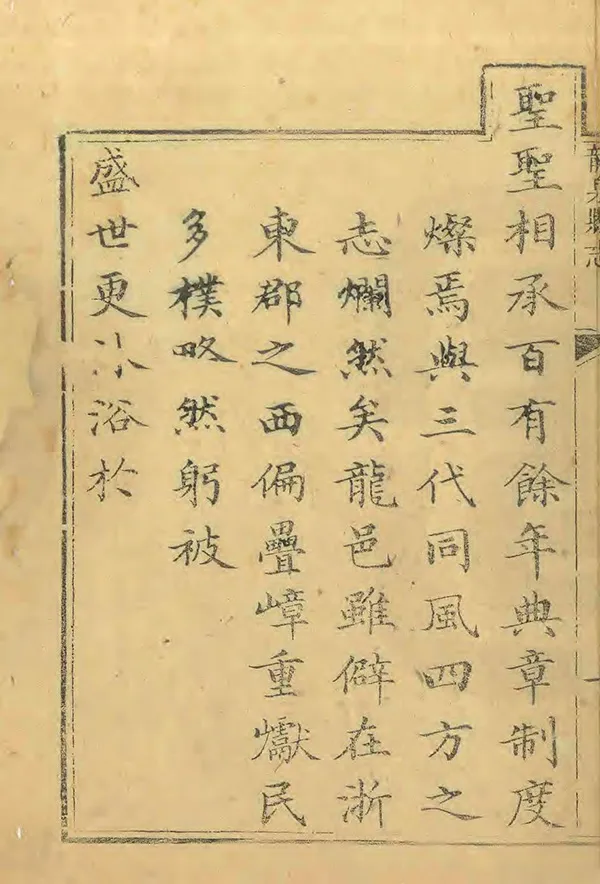 龍泉縣志
一
聖聖相承百有餘年典章制度
燦焉與三代同風四方之
志爛然矣龍邑雖僻在浙
東郡之西偏疊嶂重巘民
多樸略然躬被
盛世更沐浴於